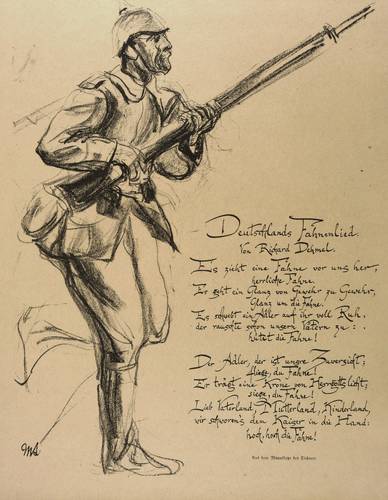 Deutschlands Fahnenlied.
Von Richard Dehmel.
Es zieht eine Fahne vor uns her,
herrliche Fahne.
Es geht ein Glanz von Gewehr zu Gewehr,
Glanz um die Fahne.
Es schwebt ein Adler auf ihr voll Ruh,
der rauschte schon unsern Vätern zu:
hütet die Fahne!
Der Adler, der ist unsre Zuversicht;
fliege, du Fahne!
Er trägt eine Krone von Herrgottslicht;
siege, du Fahne!
Lieb Vaterland, Mutterland, Kinderland,
wir schworen's dem Kaiser in die Hand:
hoch, hoch die Fahne!
Aus dem Manuskript des Dichters